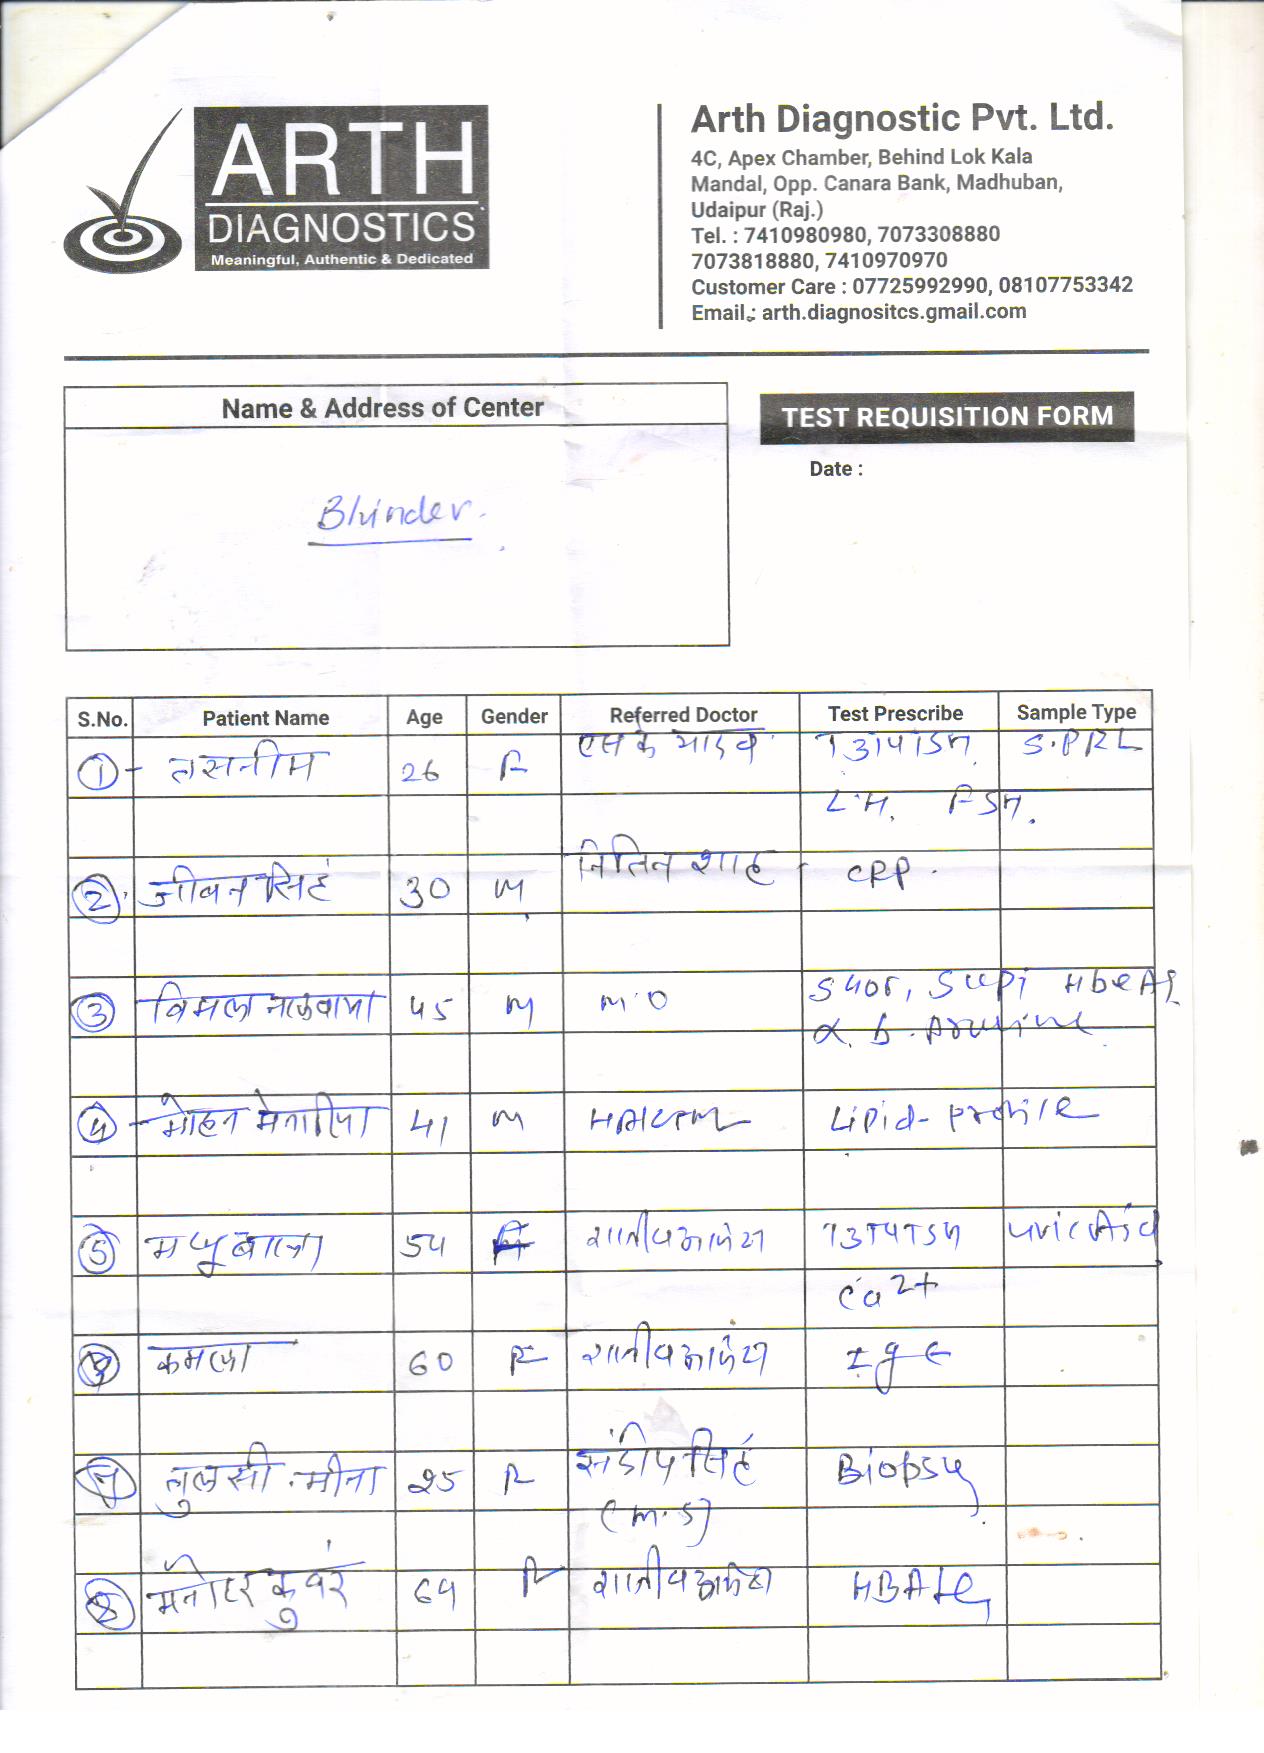 ARTH
DIAGNOSTICS
Meaningful, Authentic & Dedicated
Arth Diagnostic Pvt. Ltd.
4C, Apex Chamber, Behind Lok Kala
Mandal, Opp. Canara Bank, Madhuban,
Udaipur (Raj.)
Tel. : 7410980980, 7073308880
7073818880, 7410970970
Customer Care : 07725992990, 08107753342
Email : arth.diagnositcs.gmail.com
Name & Address of Center
TEST REQUISITION FORM
Date :
Bhinder.
S.No. Patient Name Age Gender Referred Doctor Test Prescribe Sample Type
1 - तसनीम 26 F एस के यादव T3T4TSH S.PRL
L.H. FSH.
2 जीवन सिहं 30 M नितिन शाह CRP.
3 विमल 45 M M O SGOT, SGPT HbeAg
4 मोहन मेनारिया 41 M Lipid-profile
5 मधुबाला 54 F T3T4TSH Uric Acid
Ca2+
कमला 60 F IgE
7 तुलसी मीना 25 F संदीप सिहं Biopsy
(M.S)
8 मनोहर कुवंर 64 F HBA1C